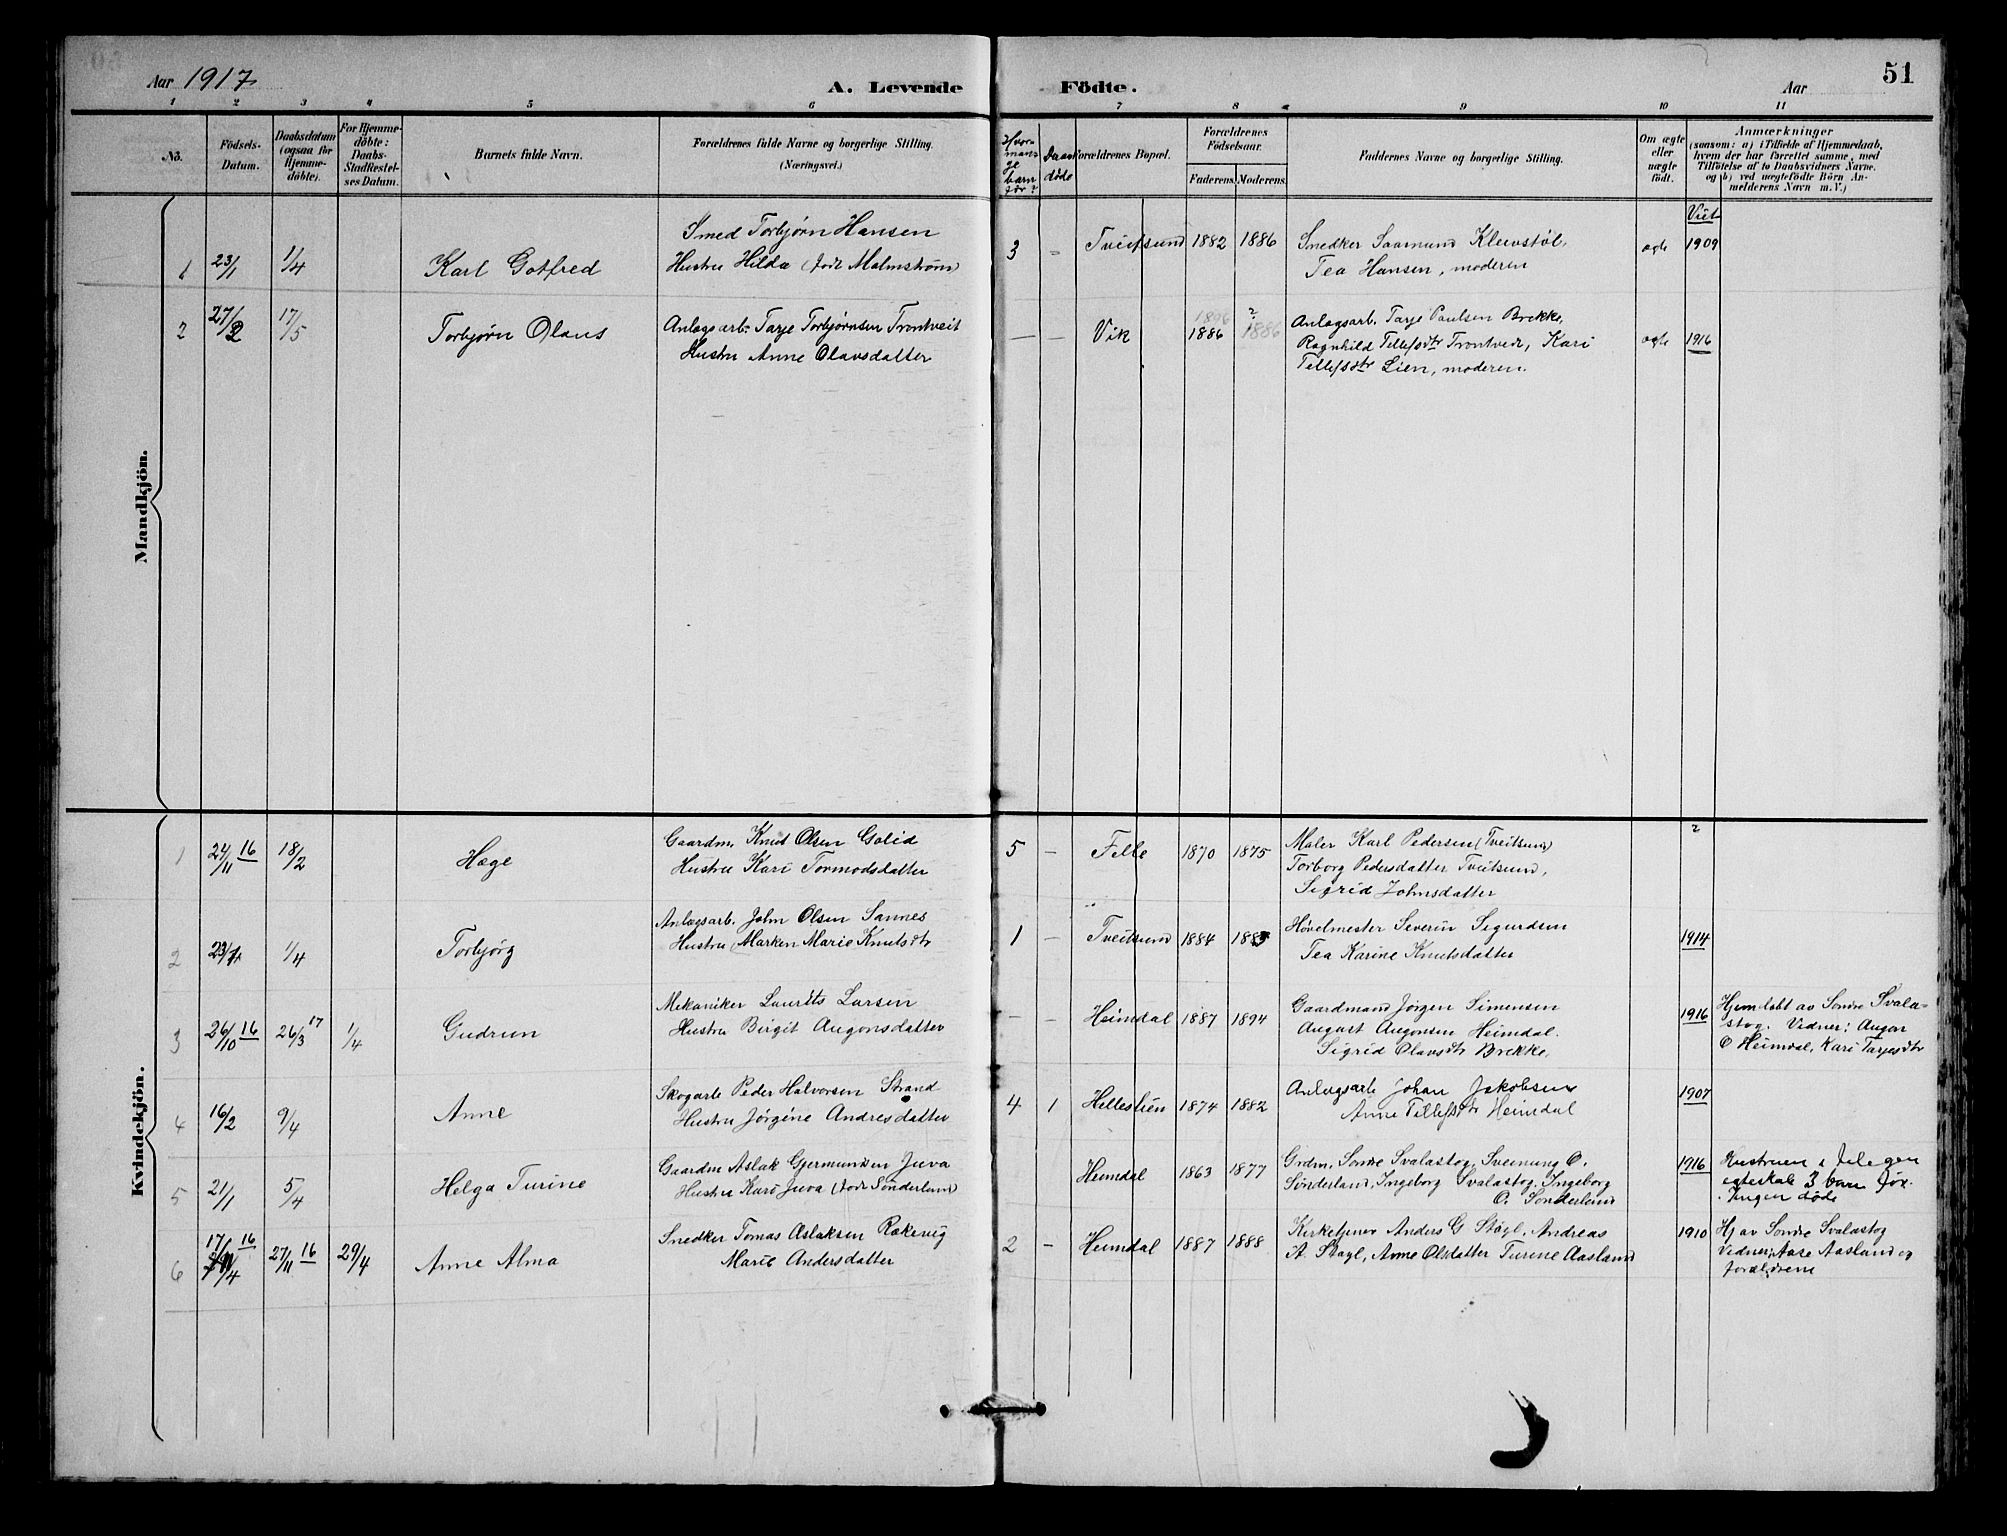 Aar 1917
A. Levende
Födte.
Aar
51
1 2 3 4 5 6 7 8 9 10 11
No.
Födsels-
Datum.
Daabsdatum
(ogsaa for
Hjemme-
döbte).
For Hjemme-
döbte:
Daabs-
Stadfæstel-
ses Datum.
Barnets fulde Navn.
Forældrenes fulde Navne og borgerlige Stilling.
(Næringsvei.)
Hvor
mange
barn
før?
døde
Forældrenes Bopæl.
Forældrenes
Födselsaar.
Faderens.
Moderens.
Faddernes Navne og borgerlige Stilling.
Om ægte
eller
uægte
födt.
Anmærkninger
(saasom: a) i Tilfælde af Hjemmedaab,
hvem der har forrettet samme, med
Tilföielse af to Daabsvidners Navne.
og b) ved uægtefödte Börn An-
melderens Navn m. V.)
Mandkjön.
Viet
1 23/1 1/4 Karl Gotfred
Smed Torbjørn Hansen
Hustru Hilda (født Malmstrøm)
3 – Tveitsund 1882 1886
Snedker Saamund Kleivstøl,
Tea Hansen, moderen
ægte 1909
2 27/2 17/5 Torbjørn Olaus
Anlægsarb. Tarje Torbjørnsen Trontveit
Hustru Anne Olavsdatter
– – Vik 1896 1886 ? 1886
Anlægsarb. Tarje Paulsen Brekke,
Ragnhild Tellefsdtr Trontveit, Kari
Tellefsdtr Lien, moderen.
ægte 1916
Kvindekjön.
1 24/11 16 18/2 Hæge
Gaardm. Knut Olsen Galid
Hustru Kari Tormodsdatter
5 – Felle 1870 1875
Maler Karl Pedersen (Tveitsund)
Torborg Pedersdatter Tveitsund,
Sigrid Johnsdatter
?
2 23/1 1/4 Torbjørg
Anlægsarb. John Olsen Sannes
Hustru Marken Marie Knutsdtr
1 – Tveitsund 1884 1885
Høvelmester Severin Sigurdsen
Tea Karine Knutsdatter
1914
3 26/10 16 26/3 17 1/4 Gudrun
Mekaniker Laurits Larsen
Hustru Birgit Augonsdatter
– – Heimdal 1887 1894
Gaardmand Jörgen Simensen
August Augonsen Heimdal.
Sigrid Olavsdtr Brekke.
1916
Hjemdøbt av Sondre Svala-
stog. Vidner: Augon
O Heimdal, Kari Tarjesdtr
4 16/2 9/4 Anne
Skogarb Peder Halvorsen Strand
Hustru Jørgine Andresdatter
4 1 Helleslien 1874 1882
Anlægsarb Johan Jakobsen
Anne Tellefsdtr Heimdal
1907
5 21/1 5/4 Helga Turine
Gaardm Aslak Gjermundsen Juva
Hustru Kari Juva (født Sønderland)
Heimdal 1863 1877
Grdm. Sondre Svalastog, Sveinung O.
Sønderland, Ingeborg Svalastog, Ingeborg
O. Sønderland
1916
Hustruen i tidligere
egteskab 3 barn før.
Ingen døde
6 17/11 16 27/11 16 29/4 Anne Alma
Snedker Tomas Aslaksen Rakevig
Marie Andersdatter
2 – Heimdal 1887 1888
Kirketjener Anders G Støyl, Andreas
A. Støyl, Anne Olsdatter Turine Aasland
1910
Hj av Sondre Svalastog
Vidner, Aase Aasland og
forældrene